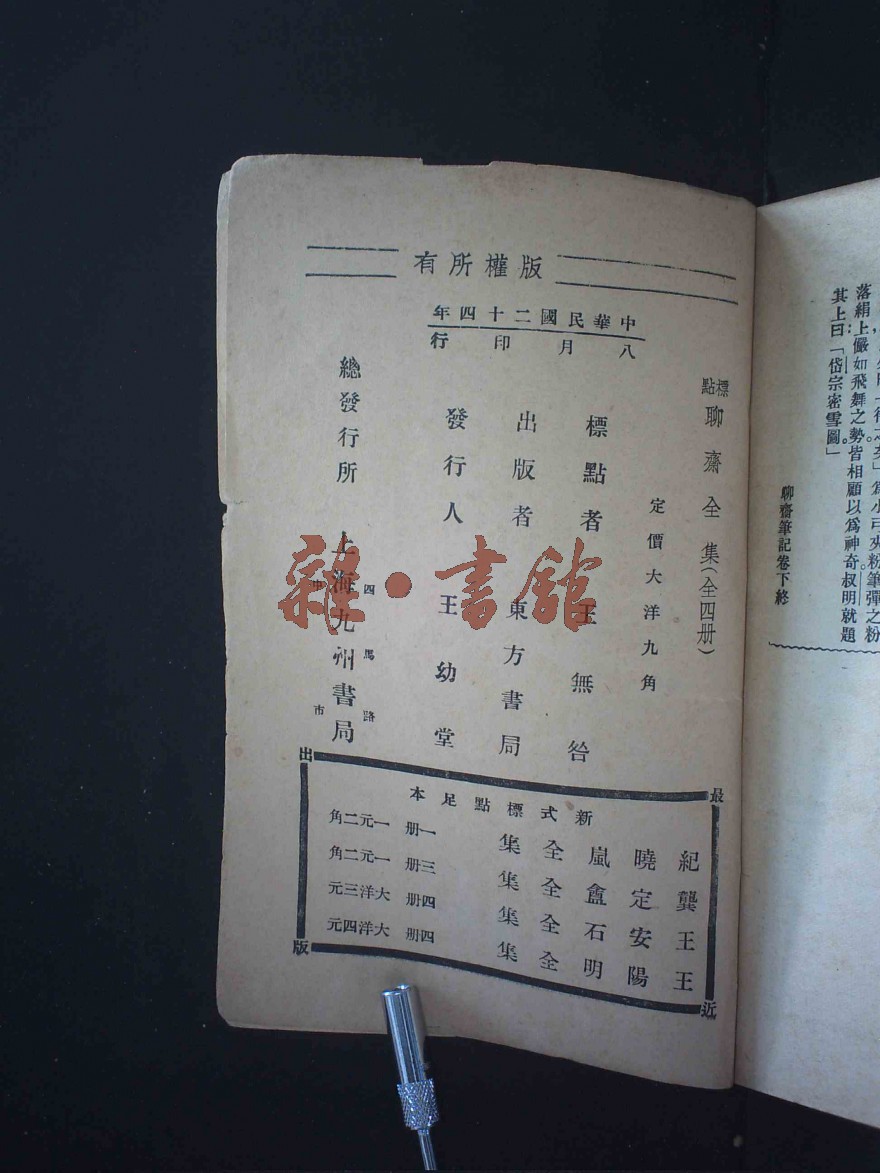 落絹上儼如飛舞之勢皆相顧以爲神奇叔明就題
其上曰「岱宗密雪圖」
聊齋筆記卷下終
版權所有
中華民國二十四年
八月印行
標點聊齋全集(全四册)
定價大洋九角
標點者 王無咎
出版者 東方書局
發行人 王幼堂
總發行所 上海九州書局
四馬路
市
最近出版
新式標點足本
紀曉嵐全集 一册 一元二角
龔定盦全集 三册 一元二角
王安石全集 四册 大洋三元
王陽明全集 四册 大洋四元
雜·書館